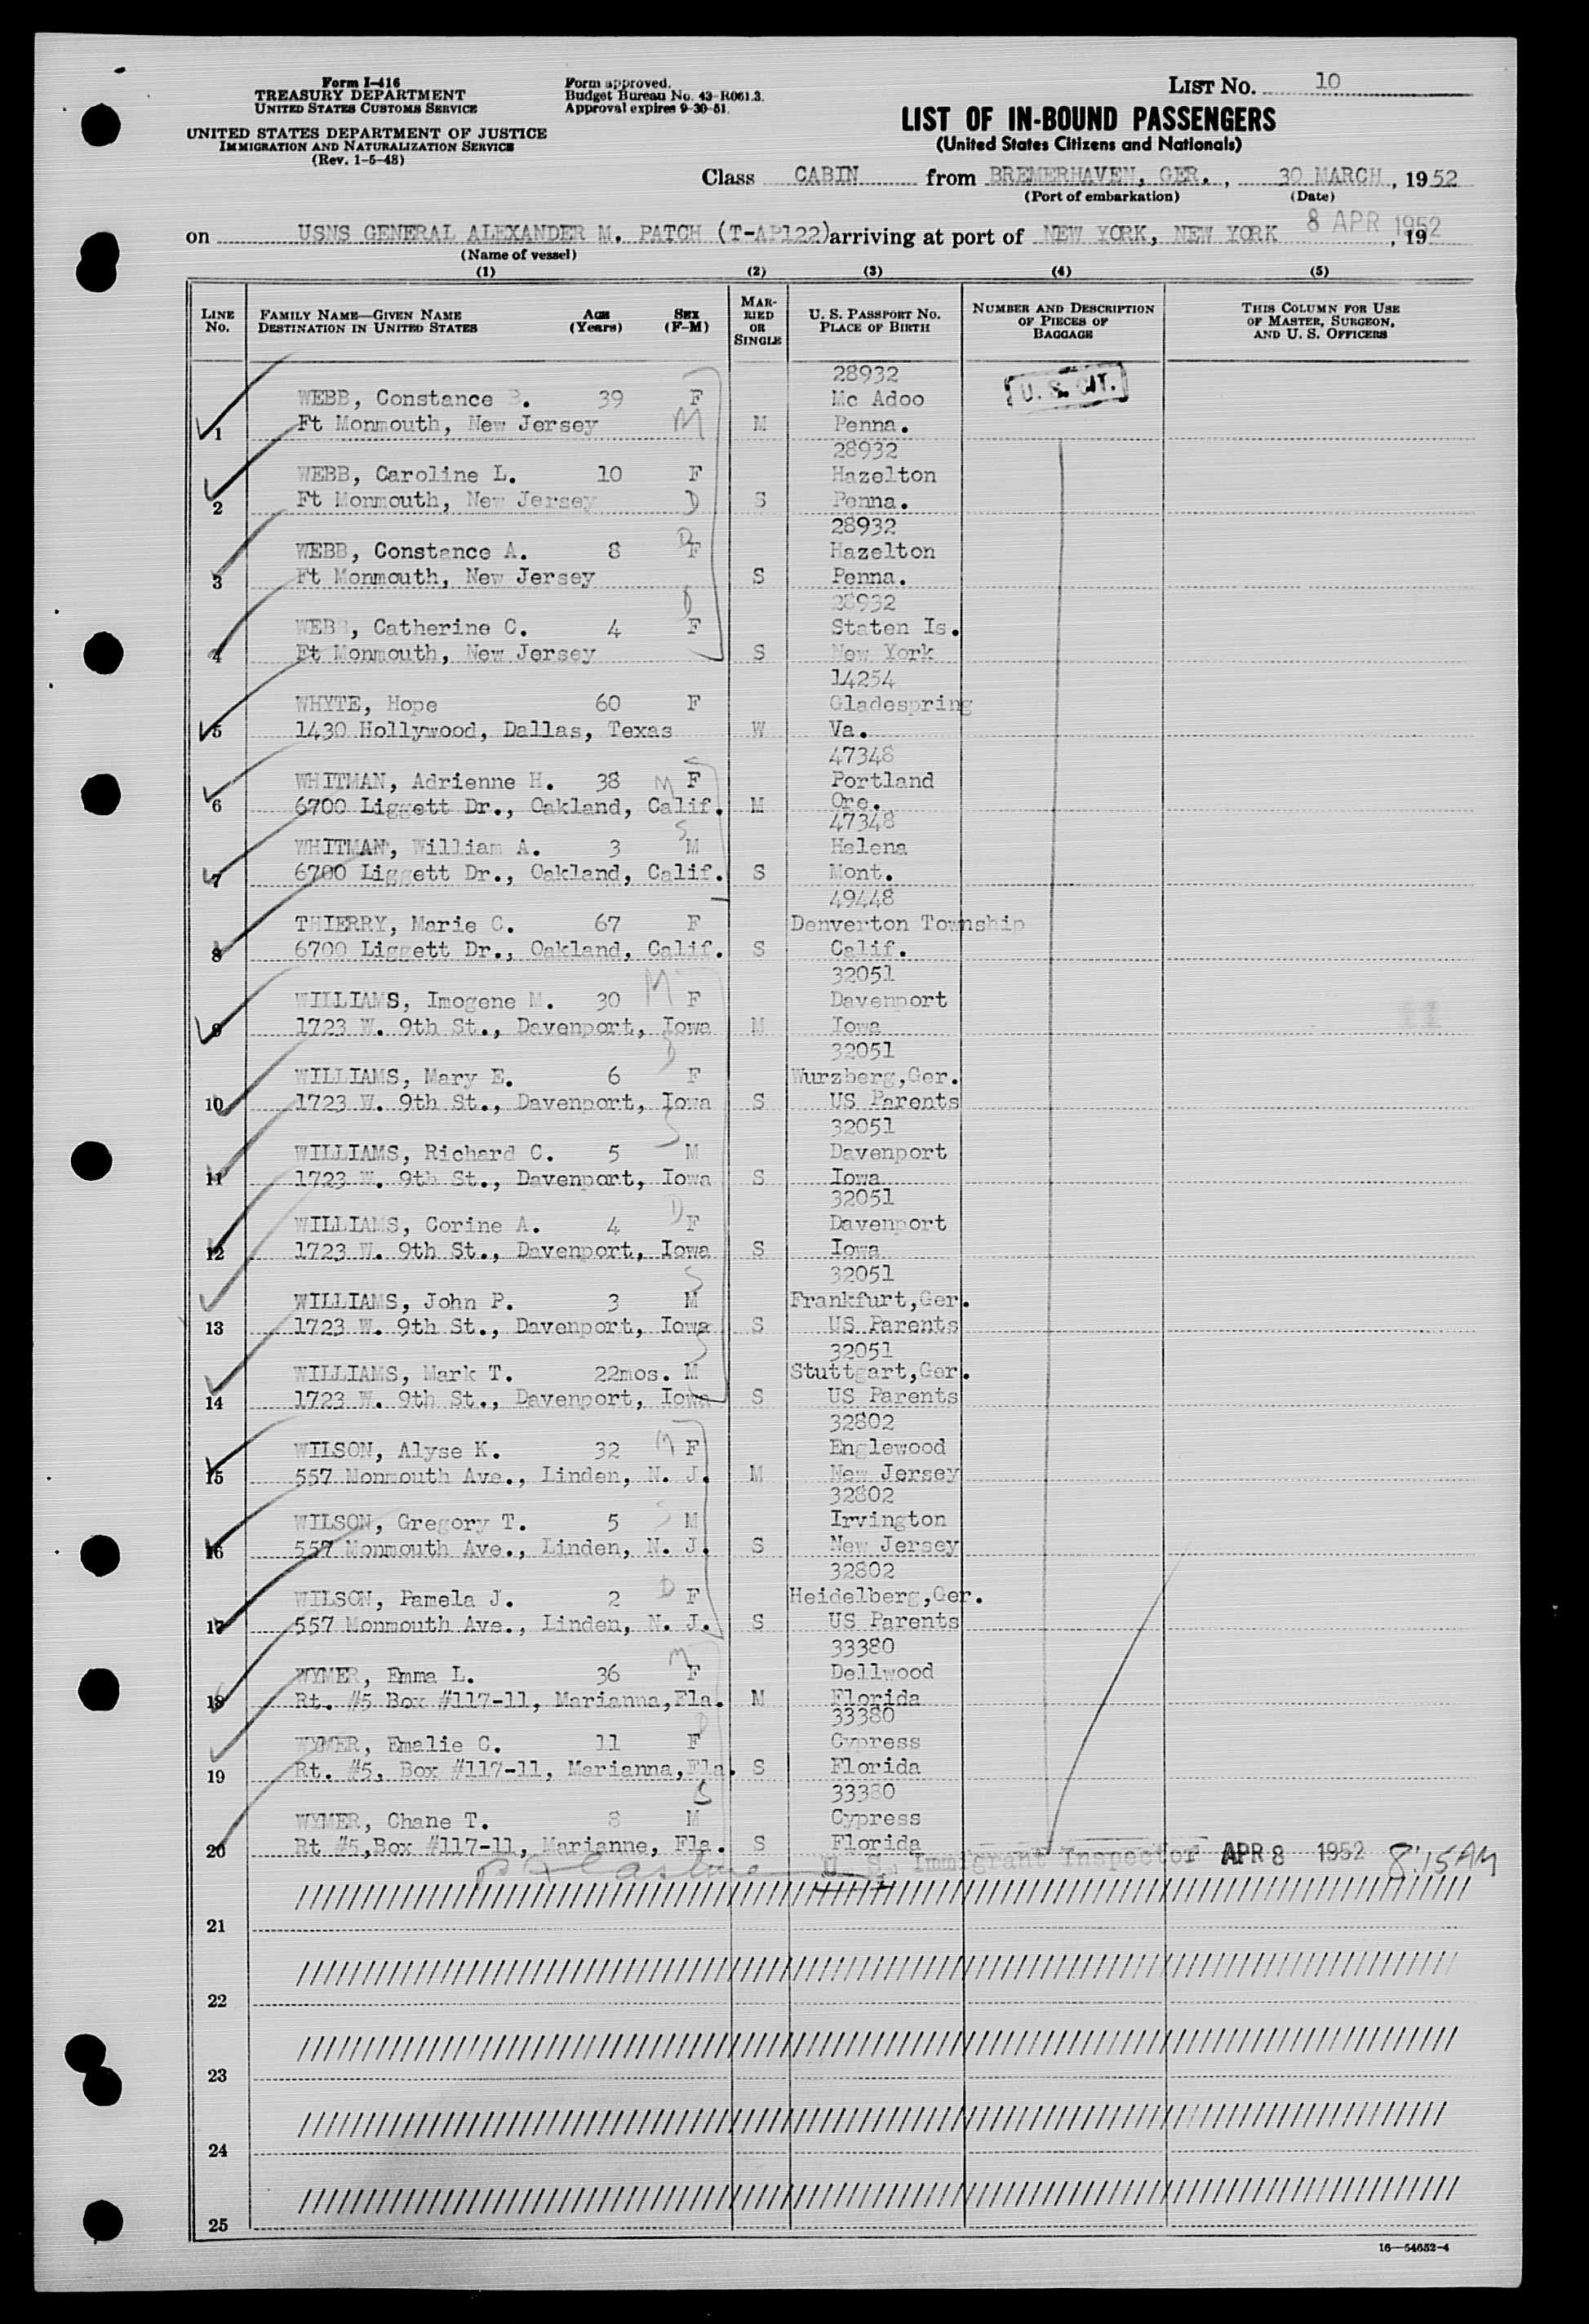 Form I-416
TREASURY DEPARTMENT
UNITED STATES CUSTOMS SERVICE
UNITED STATES DEPARTMENT OF JUSTICE
IMMIGRATION AND NATURALIZATION SERVICE
(Rev. 1-5-48)
Form approved.
Budget Bureau No. 43-R061.3.
Approval expires 9-30-51.
LIST No. 10
LIST OF IN-BOUND PASSENGERS
(United States Citizens and Nationals)
Class CABIN from BREMERHAVEN, GER., 30 MARCH, 1952
(Port of embarkation) (Date)
on USNS GENERAL ALEXANDER M. PATCH (T-AP122) arriving at port of NEW YORK, NEW YORK 8 APR 1952, 19
(Name of vessel)
(1) (2) (3) (4) (5)
LINE No. FAMILY NAME—GIVEN NAME DESTINATION IN UNITED STATES AGE (Years) SEX (F-M) MARRIED OR SINGLE U. S. PASSPORT No. PLACE OF BIRTH NUMBER AND DESCRIPTION OF PIECES OF BAGGAGE THIS COLUMN FOR USE OF MASTER, SURGEON, AND U. S. OFFICERS
28932
WEBB, Constance B. 39 F Mc Adoo U. S. CIT.
1 Ft Monmouth, New Jersey M M Penna.
28932
WEBB, Caroline L. 10 F Hazelton
2 Ft Monmouth, New Jersey D S Penna.
28932
WEBB, Constance A. 8 D F Hazelton
3 Ft Monmouth, New Jersey S Penna.
D 28932
WEBB, Catherine C. 4 F Staten Is.
4 Ft Monmouth, New Jersey S New York
14254
WHYTE, Hope 60 F Gladespring
5 1430 Hollywood, Dallas, Texas W Va.
47348
WHITMAN, Adrienne H. 38 M F Portland
6 6700 Liggett Dr., Oakland, Calif. M Ore.
47348
WHITMAN, William A. 3 S M Helena
7 6700 Liggett Dr., Oakland, Calif. S Mont.
49448
THIERRY, Marie C. 67 F Denverton Township
8 6700 Liggett Dr., Oakland, Calif. S Calif.
32051
WILLIAMS, Imogene M. 30 M F Davenport
9 1723 W. 9th St., Davenport, Iowa M Iowa
D 32051
WILLIAMS, Mary E. 6 F Wurzberg,Ger.
10 1723 W. 9th St., Davenport, Iowa S US Parents
S 32051
WILLIAMS, Richard C. 5 M Davenport
11 1723 W. 9th St., Davenport, Iowa S Iowa
32051
WILLIAMS, Corine A. 4 D F Davenport
12 1723 W. 9th St., Davenport, Iowa S Iowa
S 32051
WILLIAMS, John P. 3 M Frankfurt,Ger.
13 1723 W. 9th St., Davenport, Iowa S US Parents
S 32051
WILLIAMS, Mark T. 22mos. M Stuttgart,Ger.
14 1723 W. 9th St., Davenport, Iowa S US Parents
32802
WILSON, Alyse K. 32 M F Englewood
15 557 Monmouth Ave., Linden, N. J. M New Jersey
32802
WILSON, Gregory T. 5 S M Irvington
16 557 Monmouth Ave., Linden, N. J. S New Jersey
32802
WILSON, Pamela J. 2 D F Heidelberg,Ger.
17 557 Monmouth Ave., Linden, N. J. S US Parents
M 33380
WYMER, Emma L. 36 F Dellwood
18 Rt. #5 Box #117-11, Marianna,Fla. M Florida
D 33380
WYMER, Emalie C. 11 F Cypress
19 Rt. #5, Box #117-11, Marianna,Fla. S Florida
S 33380
WYMER, Chane T. 8 M Cypress
20 Rt #5,Box #117-11, Marianne, Fla. S Florida
U. S. Immigrant Inspector APR 8 1952 8:15AM
21
22
23
24
25
16—54652-4